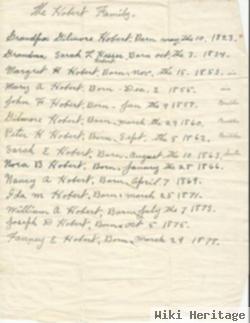 The Hobert Family.
Grandpa Gilmore Hobert, Born may the 10, 1823.
Grandma, Sarah L Hobert, Born oct, the 3. 1834.
Margret H Hobert, Born, nov, the 15. 1853.
Mary A Hobert, Born - Dec, 2 1855.
John F Hobert, Born - Jan the 9 1857.
Gilmore Hobert, Born - march the 29 1860.
Peter H Hobert, Born - Sept. the 5 1862.
Sarah E Hobert, Born - August, the 10, 1863,
Nora B Hobert, Born - January the 28 1866.
Nancy A Hobert, Born - April 7 1869.
Ida M Hobert, Born - march 25 1871.
William A Hobert, Born - July the 7 1873.
Joseph D Hobert, Born - oct 5, 1875.
Fanney E Hobert, Born - march 29 1878.
Wiki Heritage